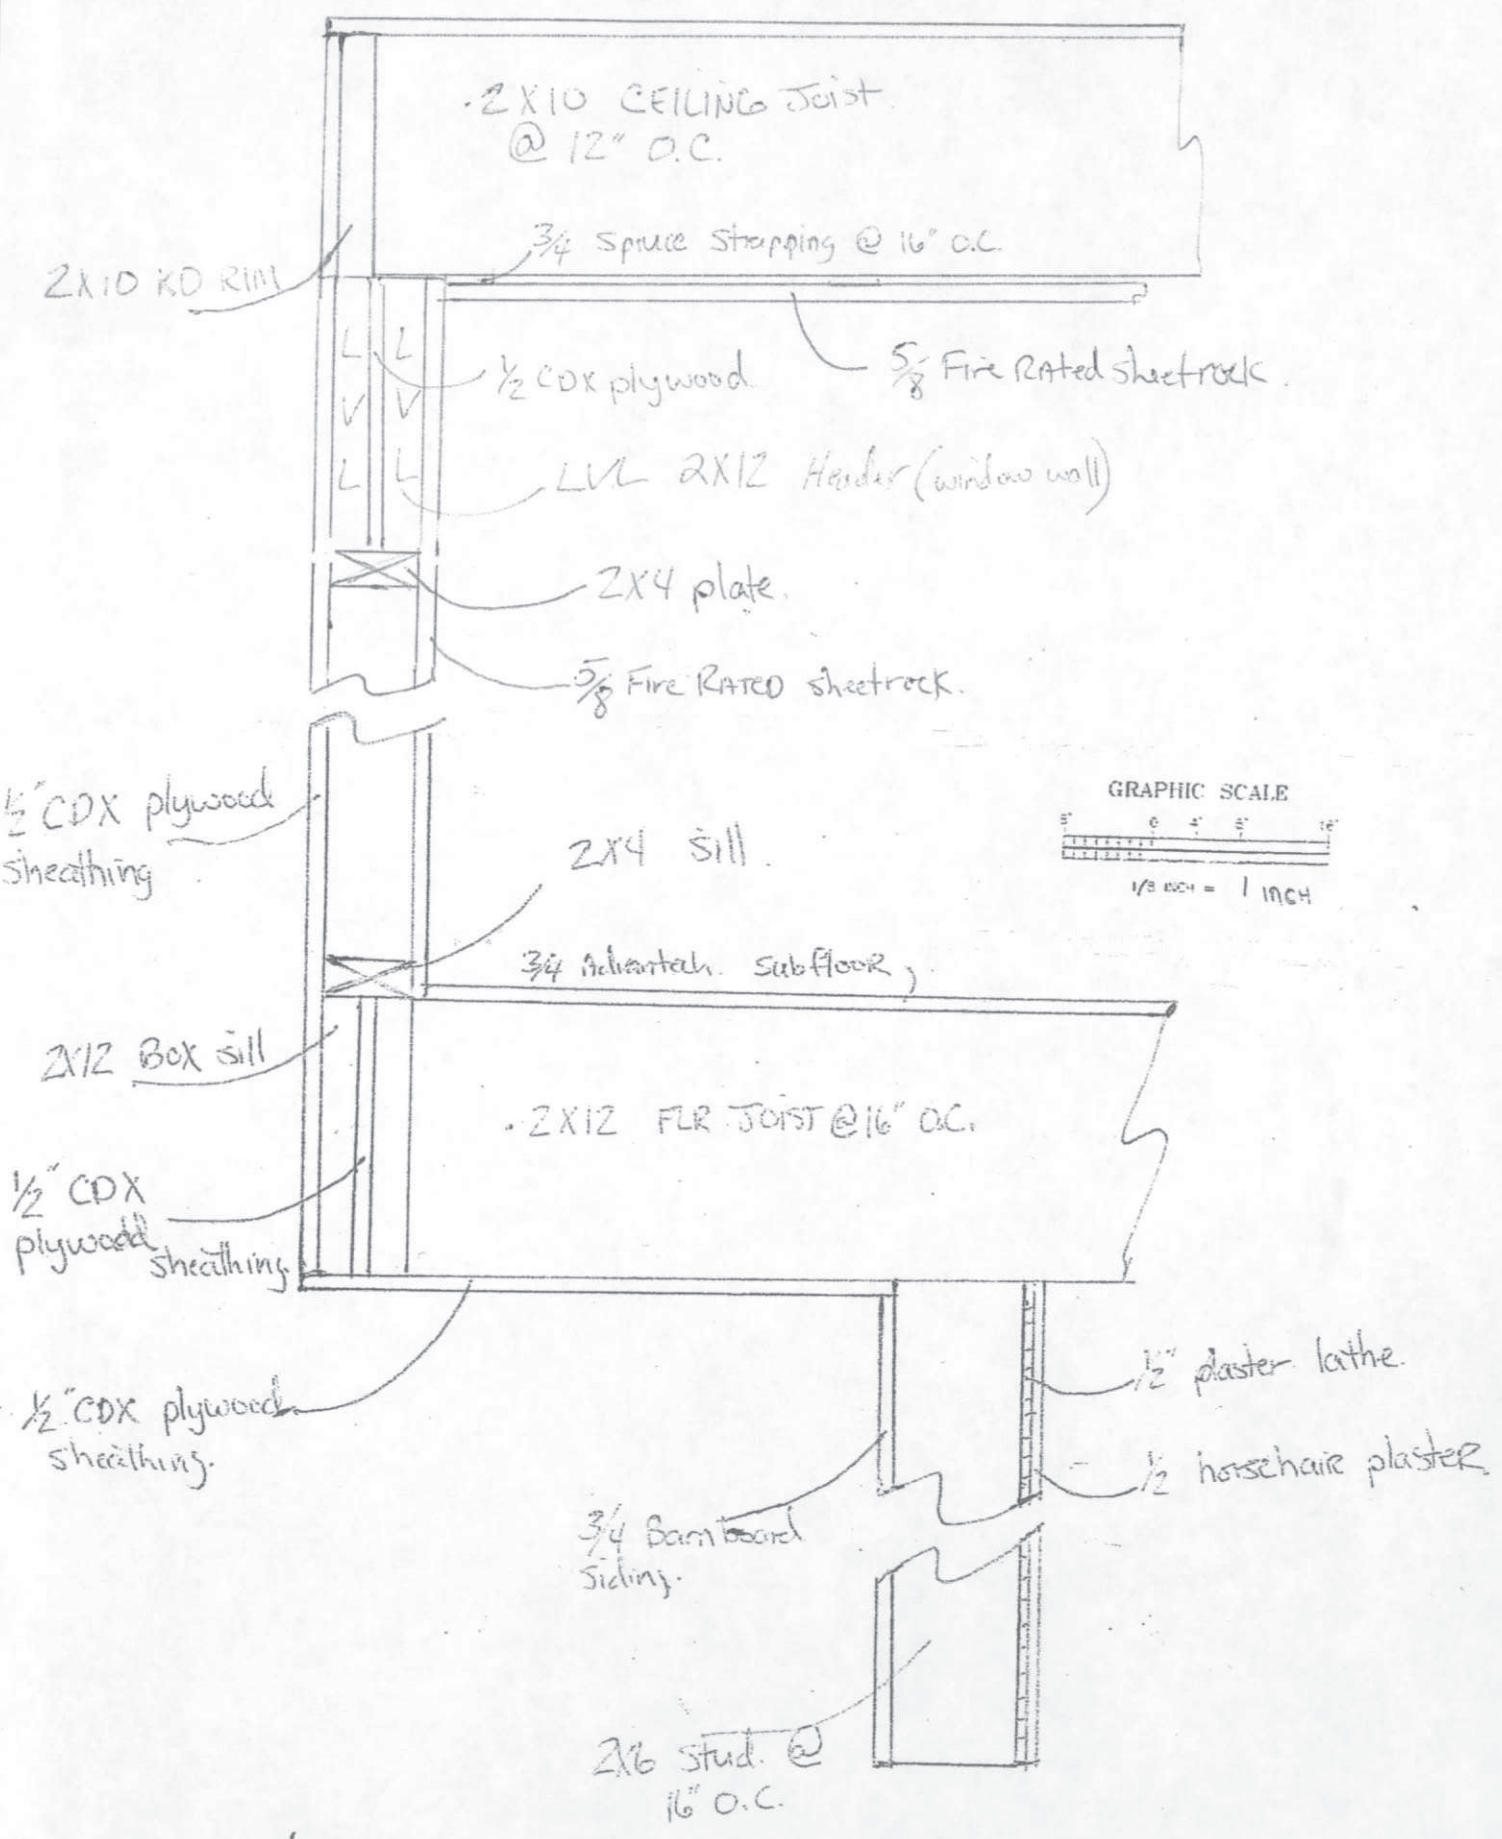 .2X10 CEILING Joist
@ 12" O.C.
3/4 Spruce Strapping @ 16" O.C.
2X10 KD RIM
L L
V V
L L
1/2 CDX plywood
5/8 Fire RAted sheetrock.
LVL 2X12 Header (window wall)
2X4 plate.
5/8 Fire RATED sheetrock.
1/2" CDX plywood
sheathing
2X4 Sill.
GRAPHIC SCALE
8" 0 4" 8" 16"
1/8 INCH = 1 INCH
3/4 Advantech. SubflooR
2X12 BOX sill
.2X12 FLR JOIST @ 16" O.C.
1/2" CDX
plywood
sheathing.
1/2" plaster lathe.
1/2" CDX plywood
sheathing.
1/2 horsehair plasteR
3/4 Barnboard
Siding.
2X6 Stud. @
16" O.C.